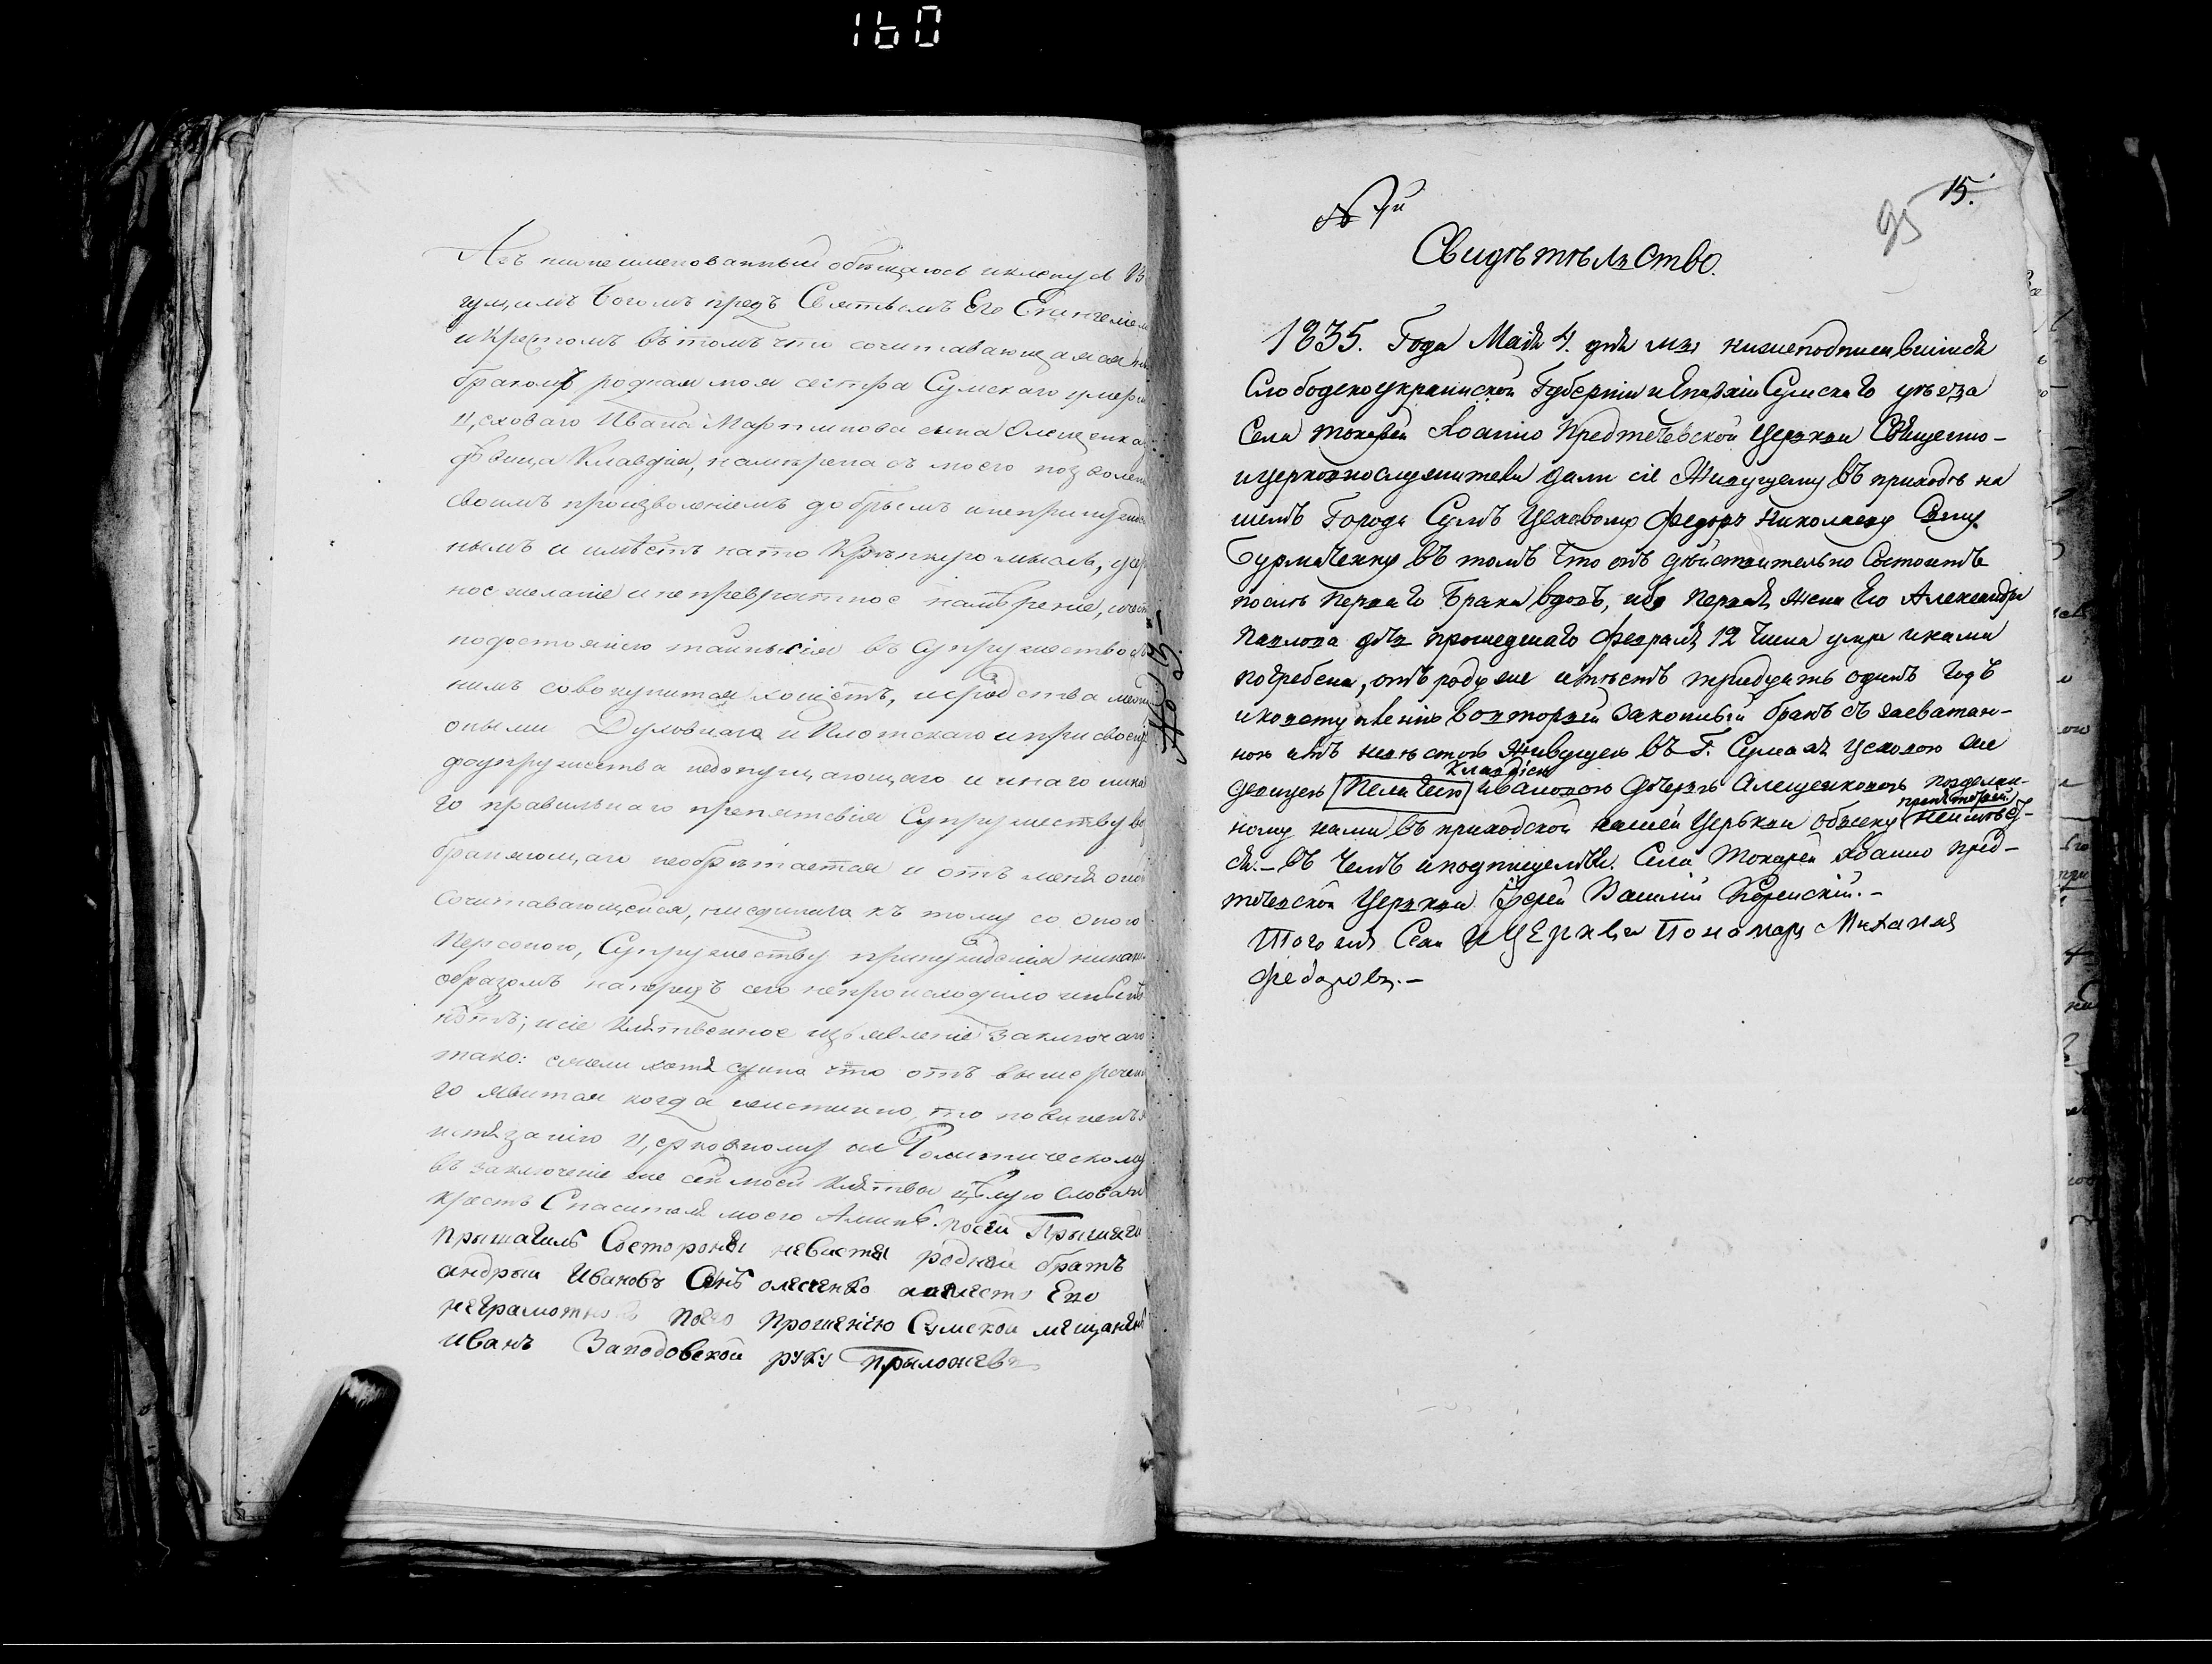 160
Азъ нижеименованный обѣщаюсь и клянусь В
гущимъ Богомъ предъ Святымъ Его Евангелием
и Крестомъ въ томъ что сочитавающаяся
бракомъ родная моя сестра Сумскаго умерш
Цеховаго Ивана Мартинова сына Олещенка
дѣвица Клавдія, намѣрена съ моего позволен
своимъ произволеніемъ добрымъ и непринужден
нымъ и имѣетъ на то Крѣпкую мысль, усер
ное желаніе и непревратное намѣреніе, и
по достоянію тайны сія въ Супружество съ
нимъ совокупитися хощетъ, и сродства межд
оными Духовнаго и Плотскаго и при своену
Супружества недопущающаго и инаго ника
го правильнаго препятствія Супружеству во
браняющаго необрѣтается и отъ мена оной
Сочитавающейся, ниединаго къ тому со оною
Персоною, Супружеству принужденія никак
образомъ напередъ сего непроисходило и
нѣтъ; и сіе Клятвенное изъявленіе заключаю
тако: ежели хотя едино что отъ вышеречен
го явится когда неистинно, то повиненъ
истязанію Церковному и Политическому
въ заключеніе же сей моей Клятвы цѣлую слова и
крестъ Спасителя моего Аминь. По сей Прысяги
прысягилъ Состороны невисты родной братъ
андрыи Ивановъ Сынъ олесченко авместо Его
неграмотн по его Прошенію Сумской мещанинъ
Иванъ Заподовской руку прыложевъ
№ 7й
15.
95
Свидѣтѣльство.
1835. Года Маія 4. дня мы нижеподписавшіися
Слободскоукраинской Губерніи и Епархіи Сумскаго уѣзда
Села Токарей Іоанно Предтечевской Церкви Священно-
и церковнослужители дали сіе Живущему въ приходѣ на
шемъ Города Сумъ Цеховому Федору Николаеву Сыну
Бурмаченку въ томъ что онъ дѣйствительно Состоитъ
послѣ перваго Брака вдовъ, ибо первая жена его Александра
Павлова дочь прошедшаго Февраля 12 числа умре и нами
погребена, отъ роду же имѣетъ тридцать одинъ годъ
и ко вступленію во вторый Законный бракъ съ засватан-
ною имъ невѣстою живущею въ Г. Сумахъ Цеховою же
Клавдіею
девицею [Пелагею] Ивановою Дочерью Алещенковою по сделан-
препятствій
ному нами въ приходской нашей Церькви обыску
ся.- въ чемъ и подпишемся. Села Токарей Іоанно пред-
течевской Церкви Іерей Василій
Того жъ Села и Церкви Пономарь Михаилъ
Федоровъ.-